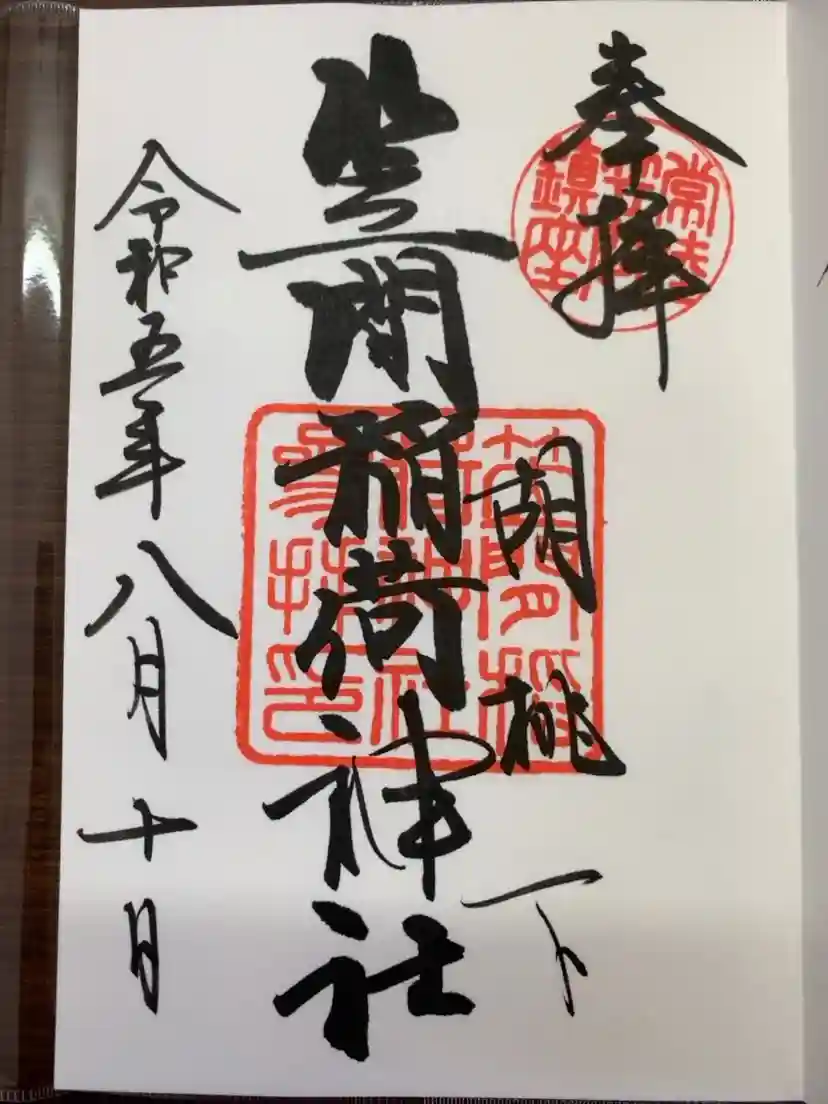 奉拝
常陸
笠間
鎮座
胡桃下
笠間稲荷神社
笠間稲
荷神社
参拝印
令和五年八月十日